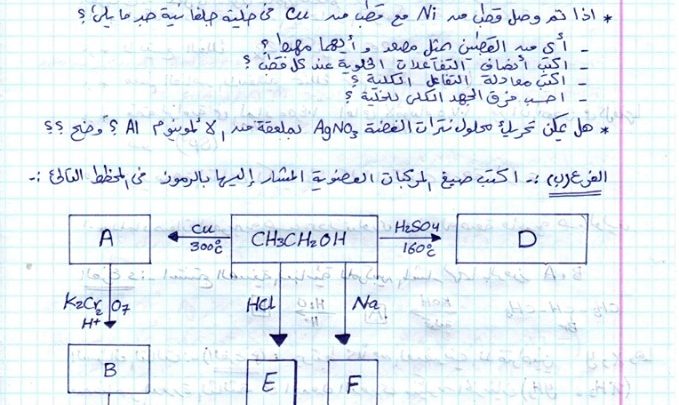 * اذا تم وصل قطب من Ni مع قطب من Cu في خلية جلفانية حدد ما يلي؟
- أي من القطبين يمثل مصعد وأيهما مهبط؟
- اكتب أنصاف التفاعلات الخلوية عند كل قطب؟
- اكتب معادلة التفاعل الكلية؟
- احسب فرق الجهد الكلي للخلية؟
* هل يمكن تحريك محلول نترات الفضة AgNO3 بملعقة من الألمونيوم Al؟ وضح؟؟
الفرع (ب) :- اكتب صيغ المركبات العضوية المشار إليها بالرموز في المخطط التالي :-
A
Cu
300°C
CH3CH2OH
H2SO4
160°C
D
K2Cr2O7
H+
HCl
Na
B
E
F